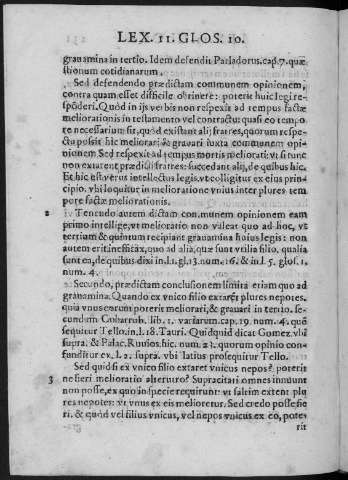 LEX. 11. GLOS. 10.
grauamina in tertio. Idem defendit Parladorus. cap. 7. quæ
stionum cotidianarum.
Sed defendendo prædictam communem opinionem,
contra quam esset difficile obtinere: poterit huic legi re-
spõderi. Quòd in ijs verbis non respexit ad tempus factæ
meliorationis in testamento vel contractu: quasi eo tempo
re necessarium sit, quòd existant alij fratres, quorum respe-
ctu possit hic meliorari & grauari iuxta communem opi-
nionem Sed respexit ad tempus mortis meliorati: vt si tunc
non extarent prædicti fratres: succedant alij, de quibus hic.
Et hic est verus intellectus legis. vt colligitur ex eius prin-
cipio. vbi loquitur in melioratione vnius inter plures tem-
pore factæ meliorationis.
2 Tenendo autem dictam communem opinionem eam
primo intellige, vt melioratio non valeat quo ad hoc, vt
tertium & quintum recipiant grauamina huius legis: non
autem erit inefficax, quo ad alia, quæ sunt vtilia filio. qualia
sunt ea, de quibus dixi in. l. gl. 13. num. 16. & in l. 5. glos. 1.
num. 4.
Secundo, prædictam conclusionem limita etiam quo ad
grauamina. Quando ex vnico filio extarẽt plures nepotes.
quia vnus earum poterit meliorari, & grauari in tertio. se-
cundum Couarrub. lib. 1. variarum. cap. 19. num. 4. quẽ
sequitur Tello, in. l. 18. Tauri. Quidquid dicat Gomez. vbi
supra. & Palac. Ruuios. hic. num. 23. quorum opinio con-
funditur ex. l. 2. supra. vbi latius prosequitur Tello.
Sed quid si ex vnico filio extaret vnicus nepos? poterit
ne fieri melioratio alterutro? Supracitari omnes innuunt
3 non posse, ex quo in specie requirunt: vt saltim extent plu
res nepotes: vt vnus ex eis melioretur. Sed credo posse fie
ri. & quòd vel filius vnicus, vel nepos vnicus ex eo, pote-
rit